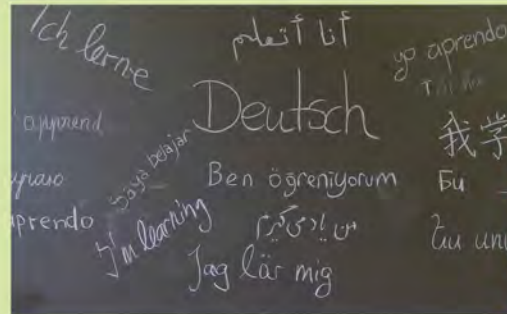 Ich lerne
أنا أتعلم
yo aprendo
Deutsch
apprend
我学
Saya belajar
Ben öğreniyorum
Бu
aprendo
I'm learning
من یاد می‌گیرم
Jag lär mig